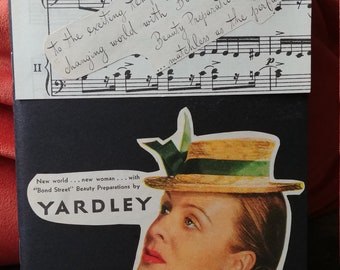 To the exciting
changing world with
Beauty Preparations
matchless as the
II
New world . . . new woman . . . with
"Bond Street" Beauty Preparations by
YARDLEY